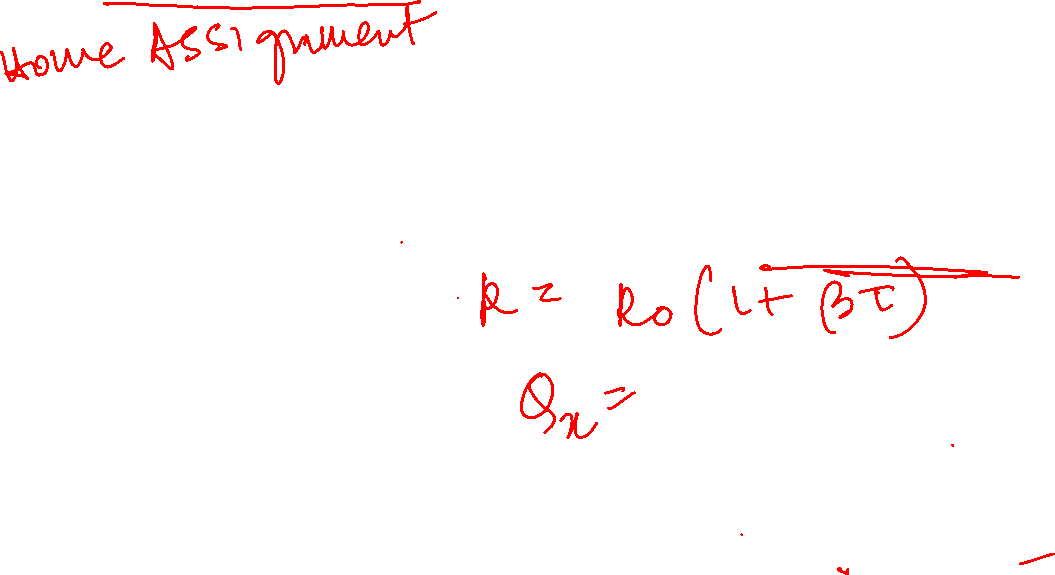 Home Assignment
R = R0 (1 + βT)
Qx =